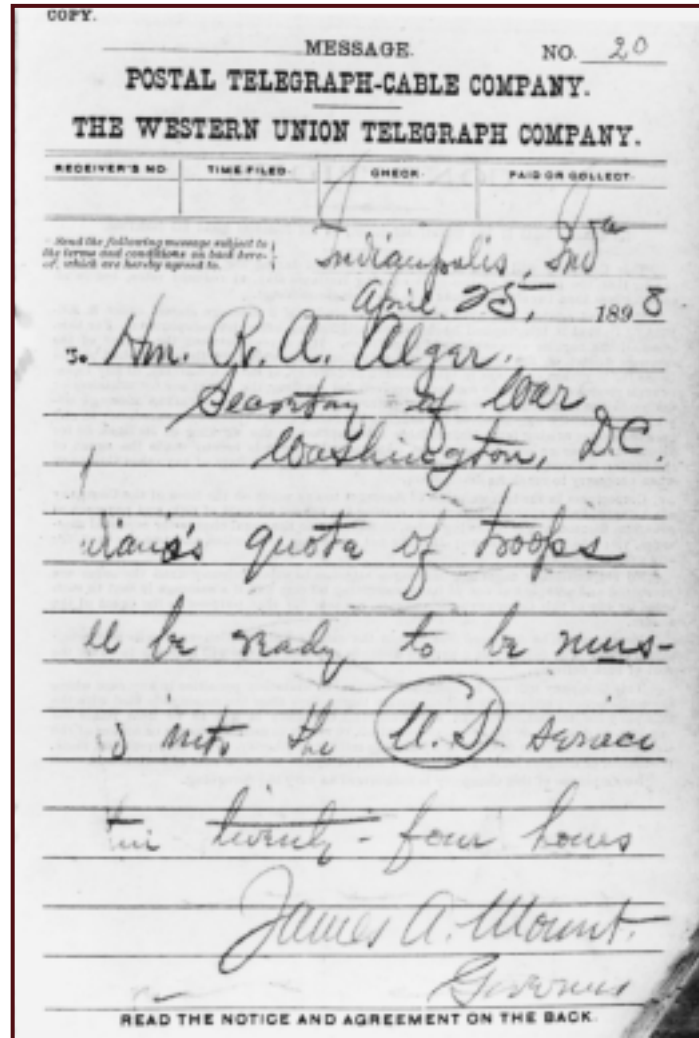 COPY.
MESSAGE. NO. 20
POSTAL TELEGRAPH-CABLE COMPANY.
THE WESTERN UNION TELEGRAPH COMPANY.
RECEIVER'S NO. TIME FILED. CHECK. PAID OR COLLECT.
Send the following message subject to
the terms and conditions on back here-
of, which are hereby agreed to.
Indianapolis, Ind
April 25, 1898
To Hon. R. A. Alger.
Secretary of War
Washington, D.C.
diana's quota of troops
ll be ready to be mus-
d into the U.S service
hin twenty-four hours
James A. Mount.
Governor
READ THE NOTICE AND AGREEMENT ON THE BACK.